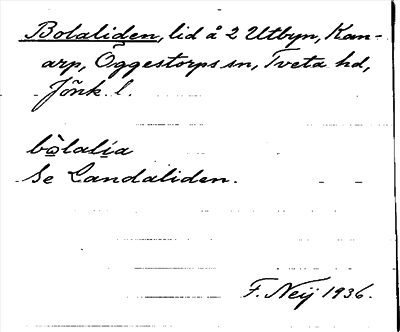 Bolaliden, lid å 2 Utbyn, Kan-
arp, Öggestorps sn, Tveta hd,
Jönk. l.
bòlalía
Se Landaliden.
F. Neij 1936.